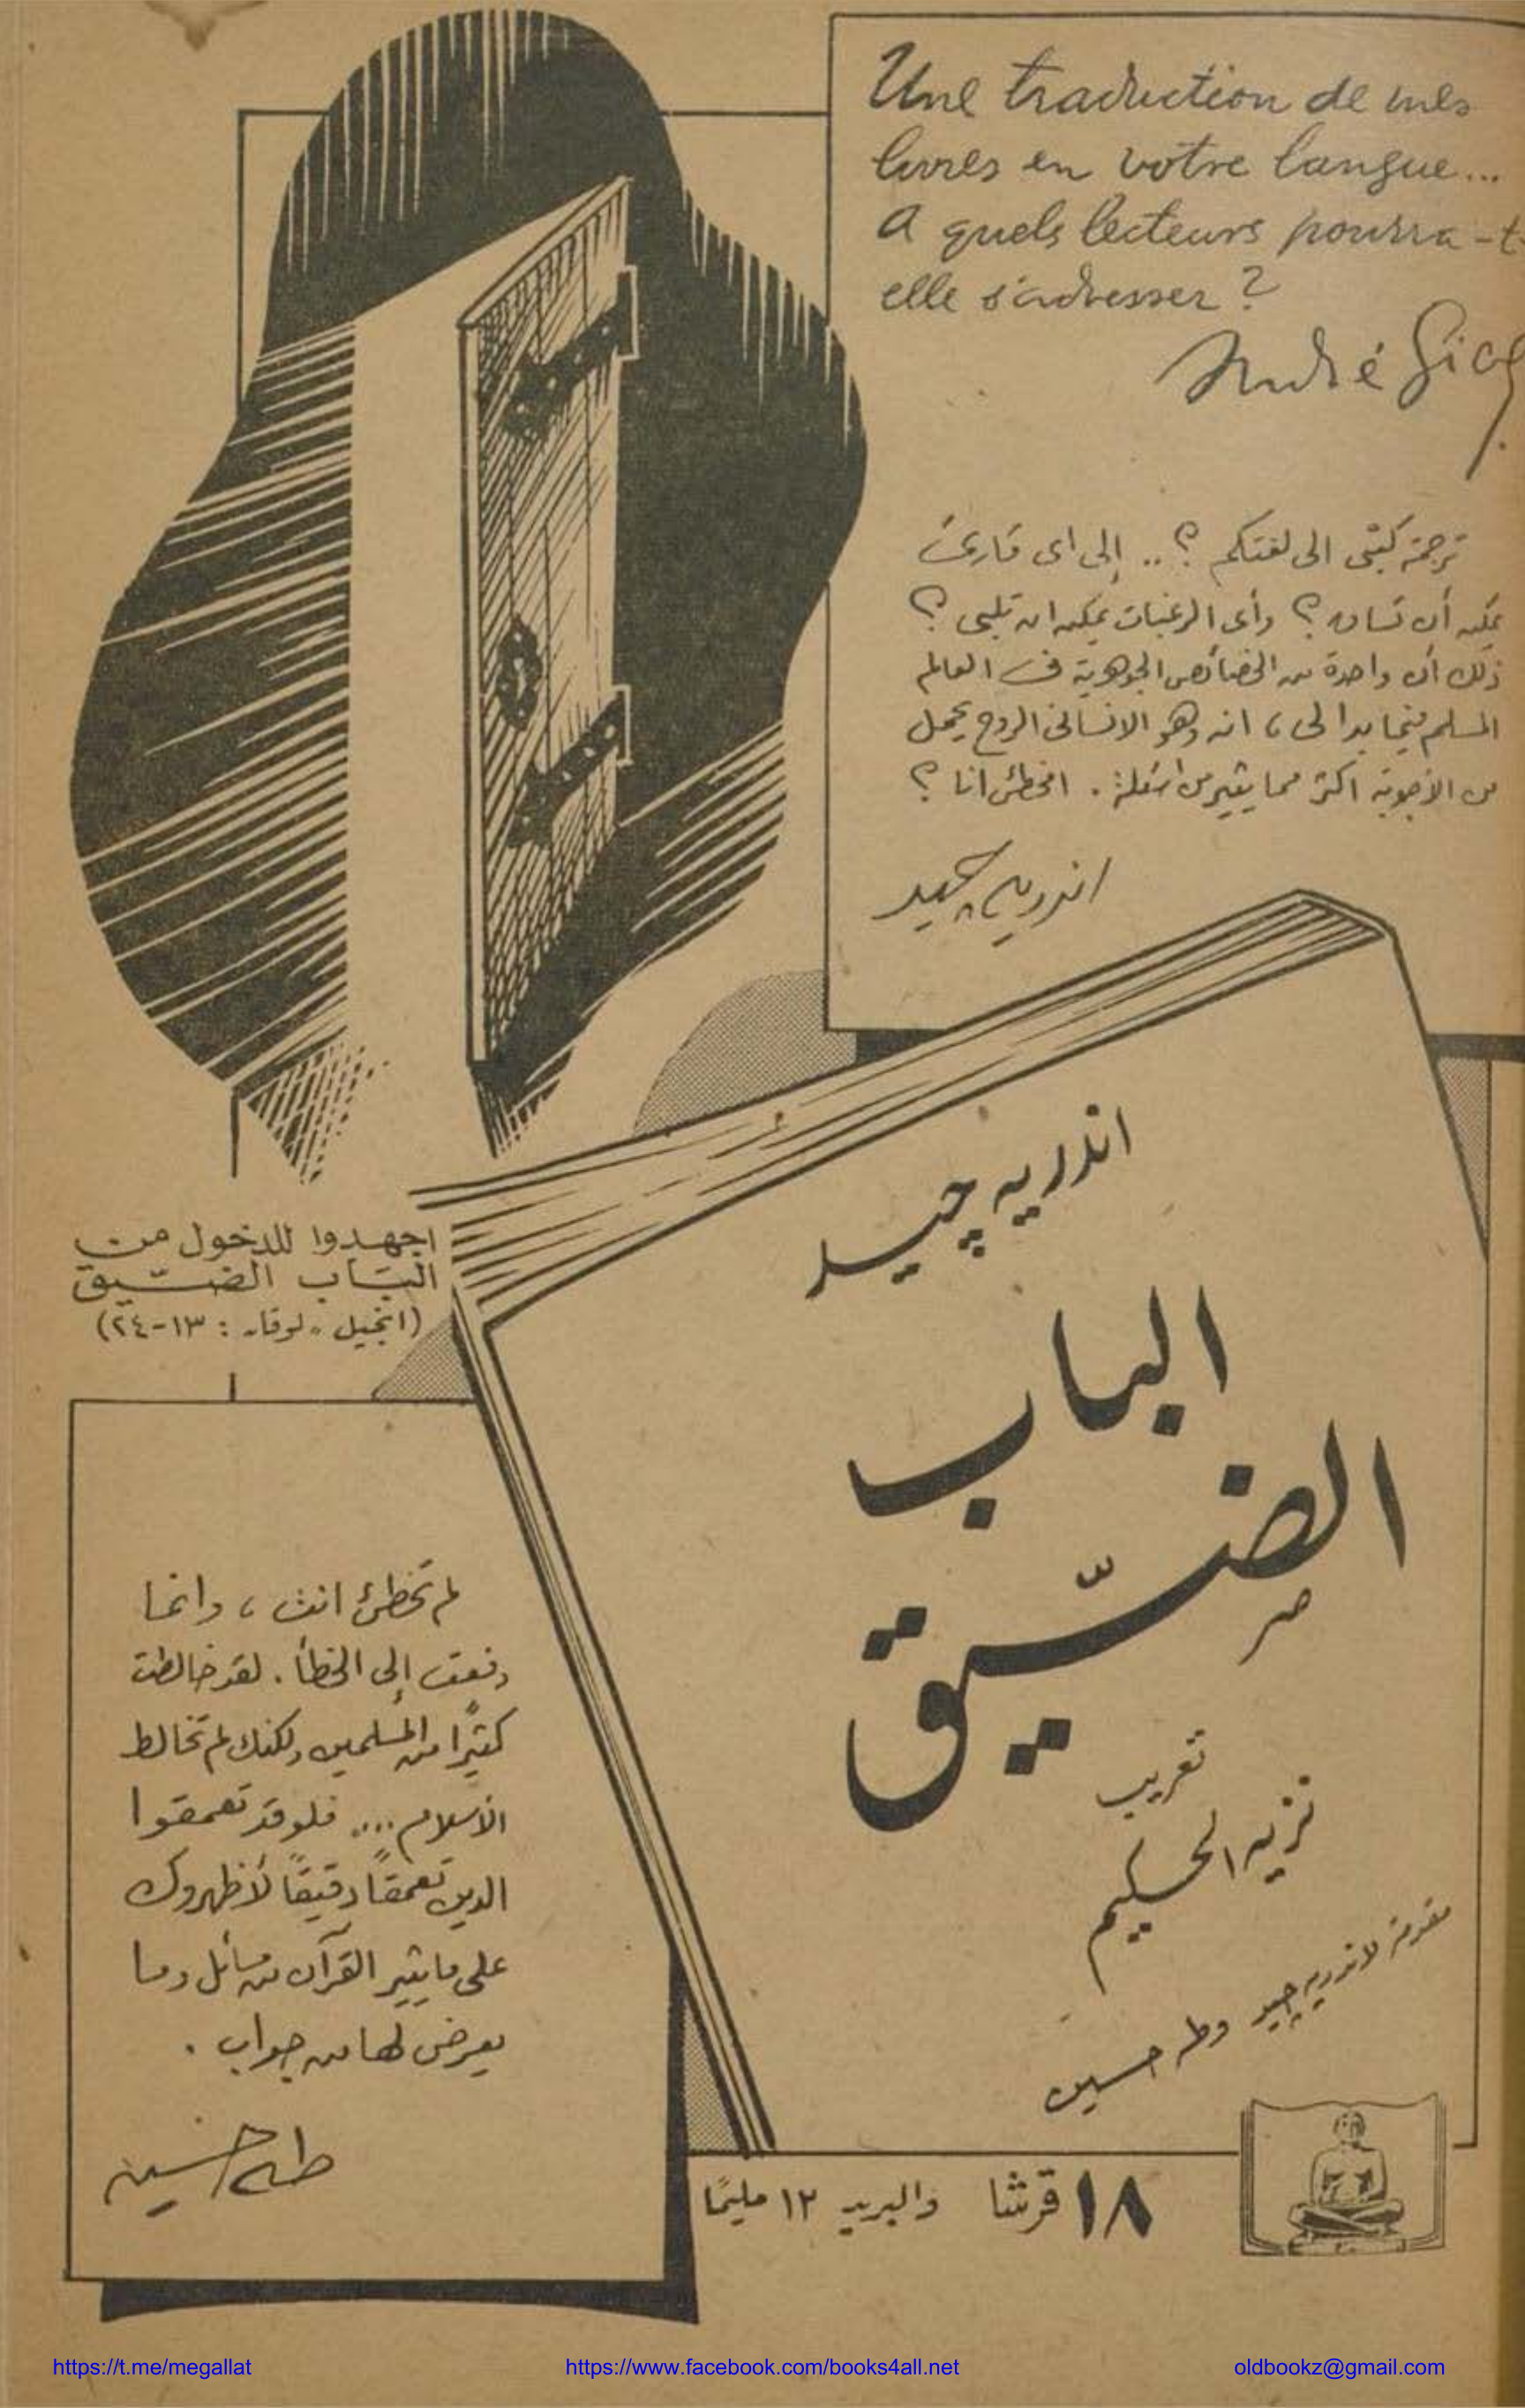 Une traduction de mes
livres en votre langue...
A quels lecteurs pourra-t-
elle s'adresser ?
André Gide
ترجمة كتبى الى لغتكم ؟ .. إلى اى قارئ
يمكن أن تساق ؟ وأى الرغبات يمكن ان تلبى ؟
ذلك أن واحدة من الخصائص الجوهرية فى العالم
المسلم فيما بدا لى ، انه وهو الانسانى الروح يحمل
من الأجوبة اكثر مما يثير من اسئلة . امخطئ انا ؟
اندريه چيد
اندريه چيد
الباب
الضيّق
تعريب
نزيه الحكيم
مقدمة لاندريه چيد وطه حسين
اجهدوا للدخول من
الباب الضيّق
(انجيل «لوقا» : ١٣-٢٤)
لم تخطئ انت ، وانما
دفعت إلى الخطأ . لقد خالطت
كثيرًا من المسلمين ولكنك لم تخالط
الاسلام .... فلو قد تعمقوا
الدين تعمقًا دقيقًا لأظهروك
على ما يثير القرآن من مسائل وما
يعرض لها من جواب .
طه حسين
١٨ قرشا والبريد ١٢ مليمًا
https://t.me/megallat
https://www.facebook.com/books4all.net
oldbookz@gmail.com